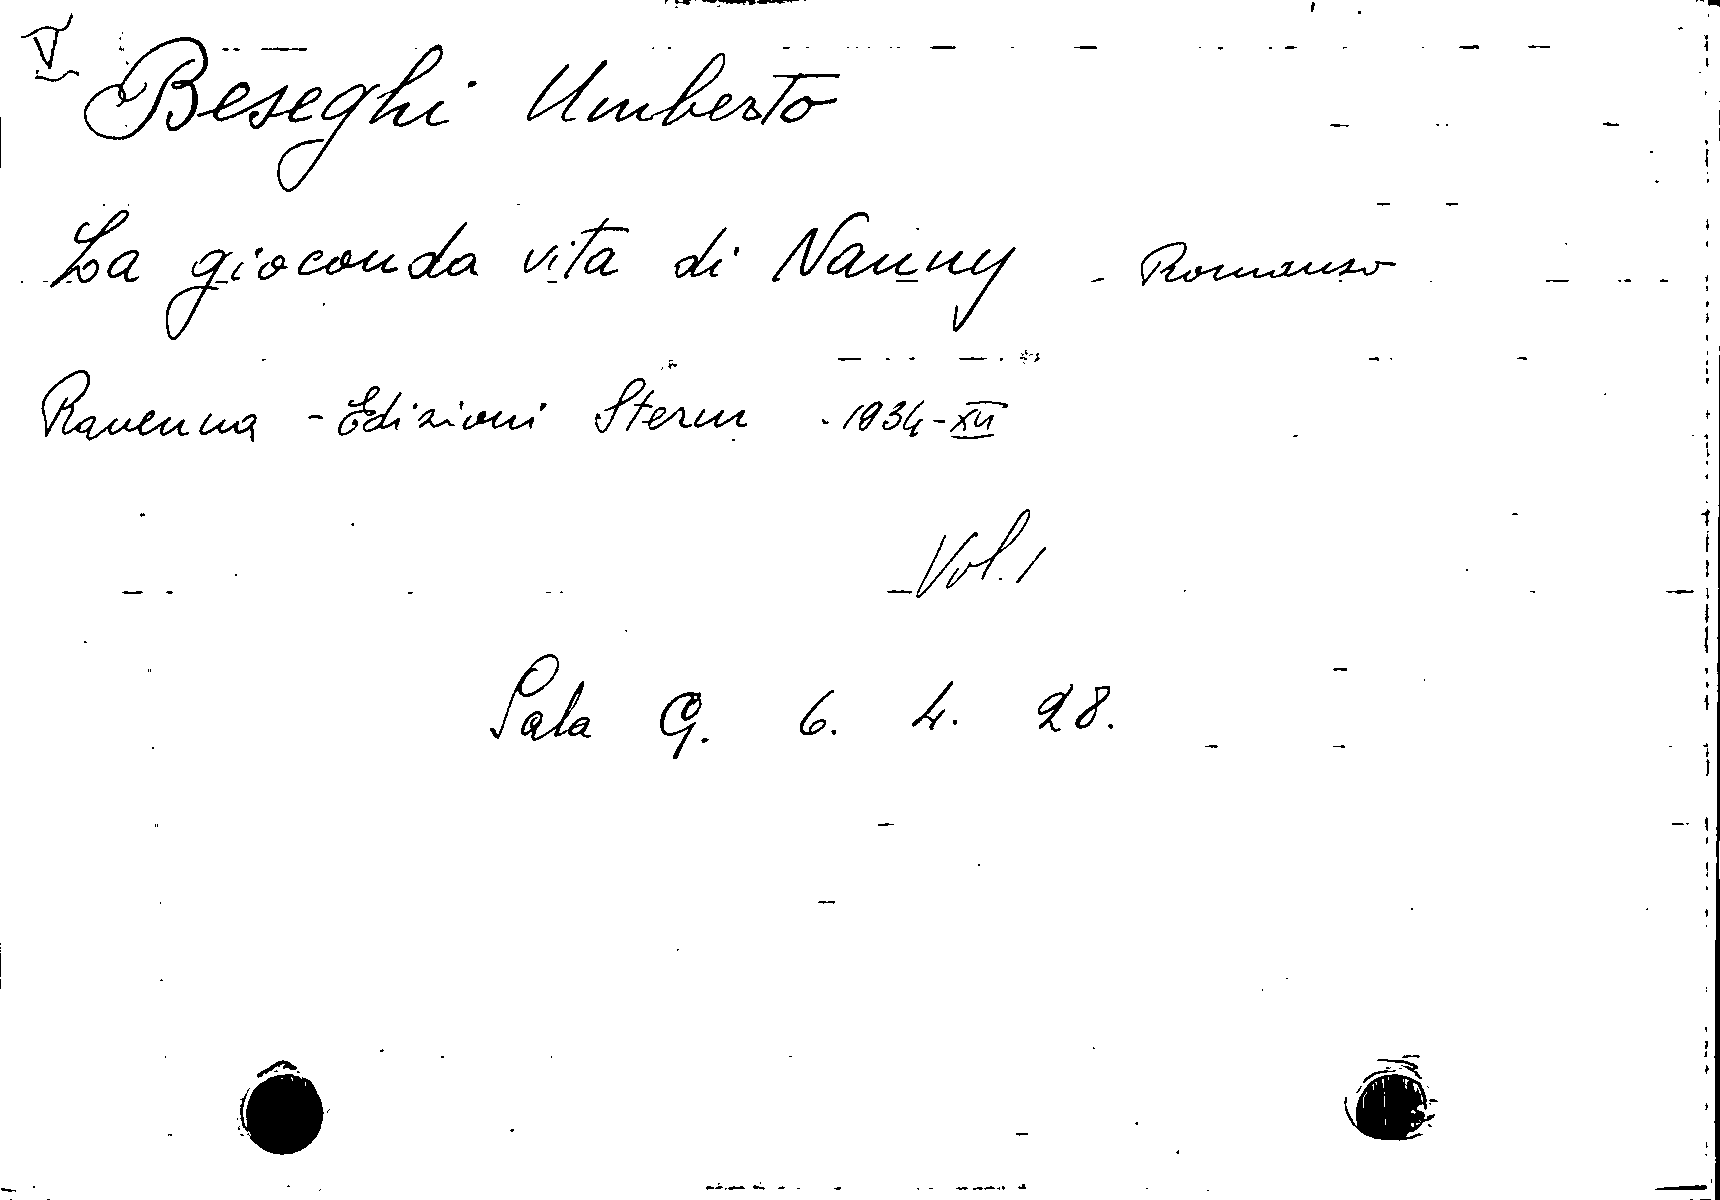 V
Beseghi Umberto
La gioconda vita di Nanny - Romanzo
Ravenna - Edizioni Sterm - 1934-XII
Vol. 1
Sala G. 6. 4. 28.